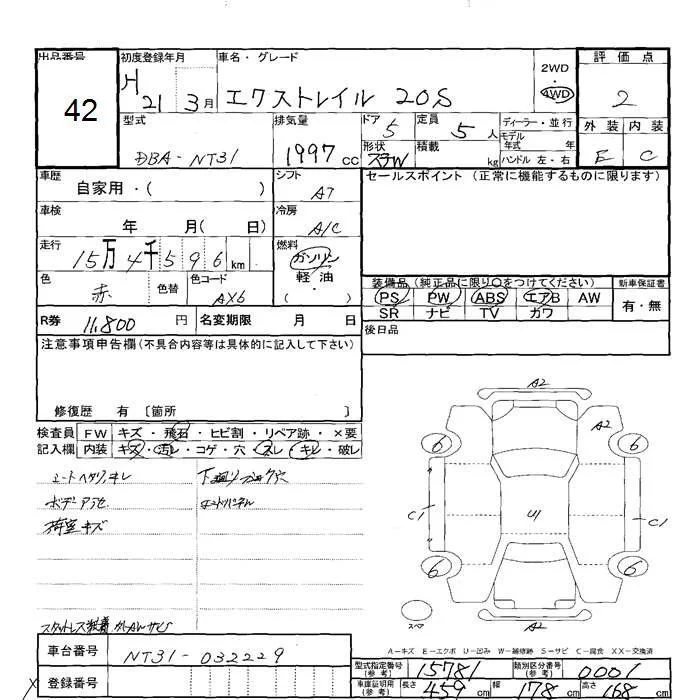 出品番号
42
初度登録年月
H 21 3月
車名・グレード
エクストレイル 20S
2WD
4WD
評価点
2
外装 内装
E C
型式
DBA-NT31
排気量
1997 cc
ドア 5
定員 5 人
形状
積載 kg
ディーラー・並行
モデル年式 年
ハンドル 左・右
車歴
自家用・( )
シフト
A7
セールスポイント (正常に機能するものに限ります)
車検
年 月( 日)
冷房
A/C
走行
15万4千596km
燃料
ガソリン
軽油
( )
色
赤
色替
色コード
AX6
装備品(純正品に限り○をつけてください)
新車保証書
PS PW ABS エアB AW
SR ナビ TV カワ
有・無
R券 11,800 円
名変期限 月 日
後日品
注意事項申告欄(不具合内容等は具体的に記入して下さい)
修復歴 有 [箇所 ]
検査員記入欄
FW キズ・飛石・ヒビ割・リペア跡・×要
内装 キズ・汚レ・コゲ・穴・スレ・キレ・破レ
キレ
ボデー
荷室キズ
A2
A2
6 6
C1 U1 C1
6 6
スペア
A2
A-キズ E-エクボ U-凹み W-補修跡 S-サビ C-腐食 XX-交換済
車台番号
NT31-032229
登録番号
型式指定番号(参考) 15781
類別区分番号(参考) 0001
車庫証明用(参考) 長さ 459 cm 幅 178 cm 高さ 168 cm